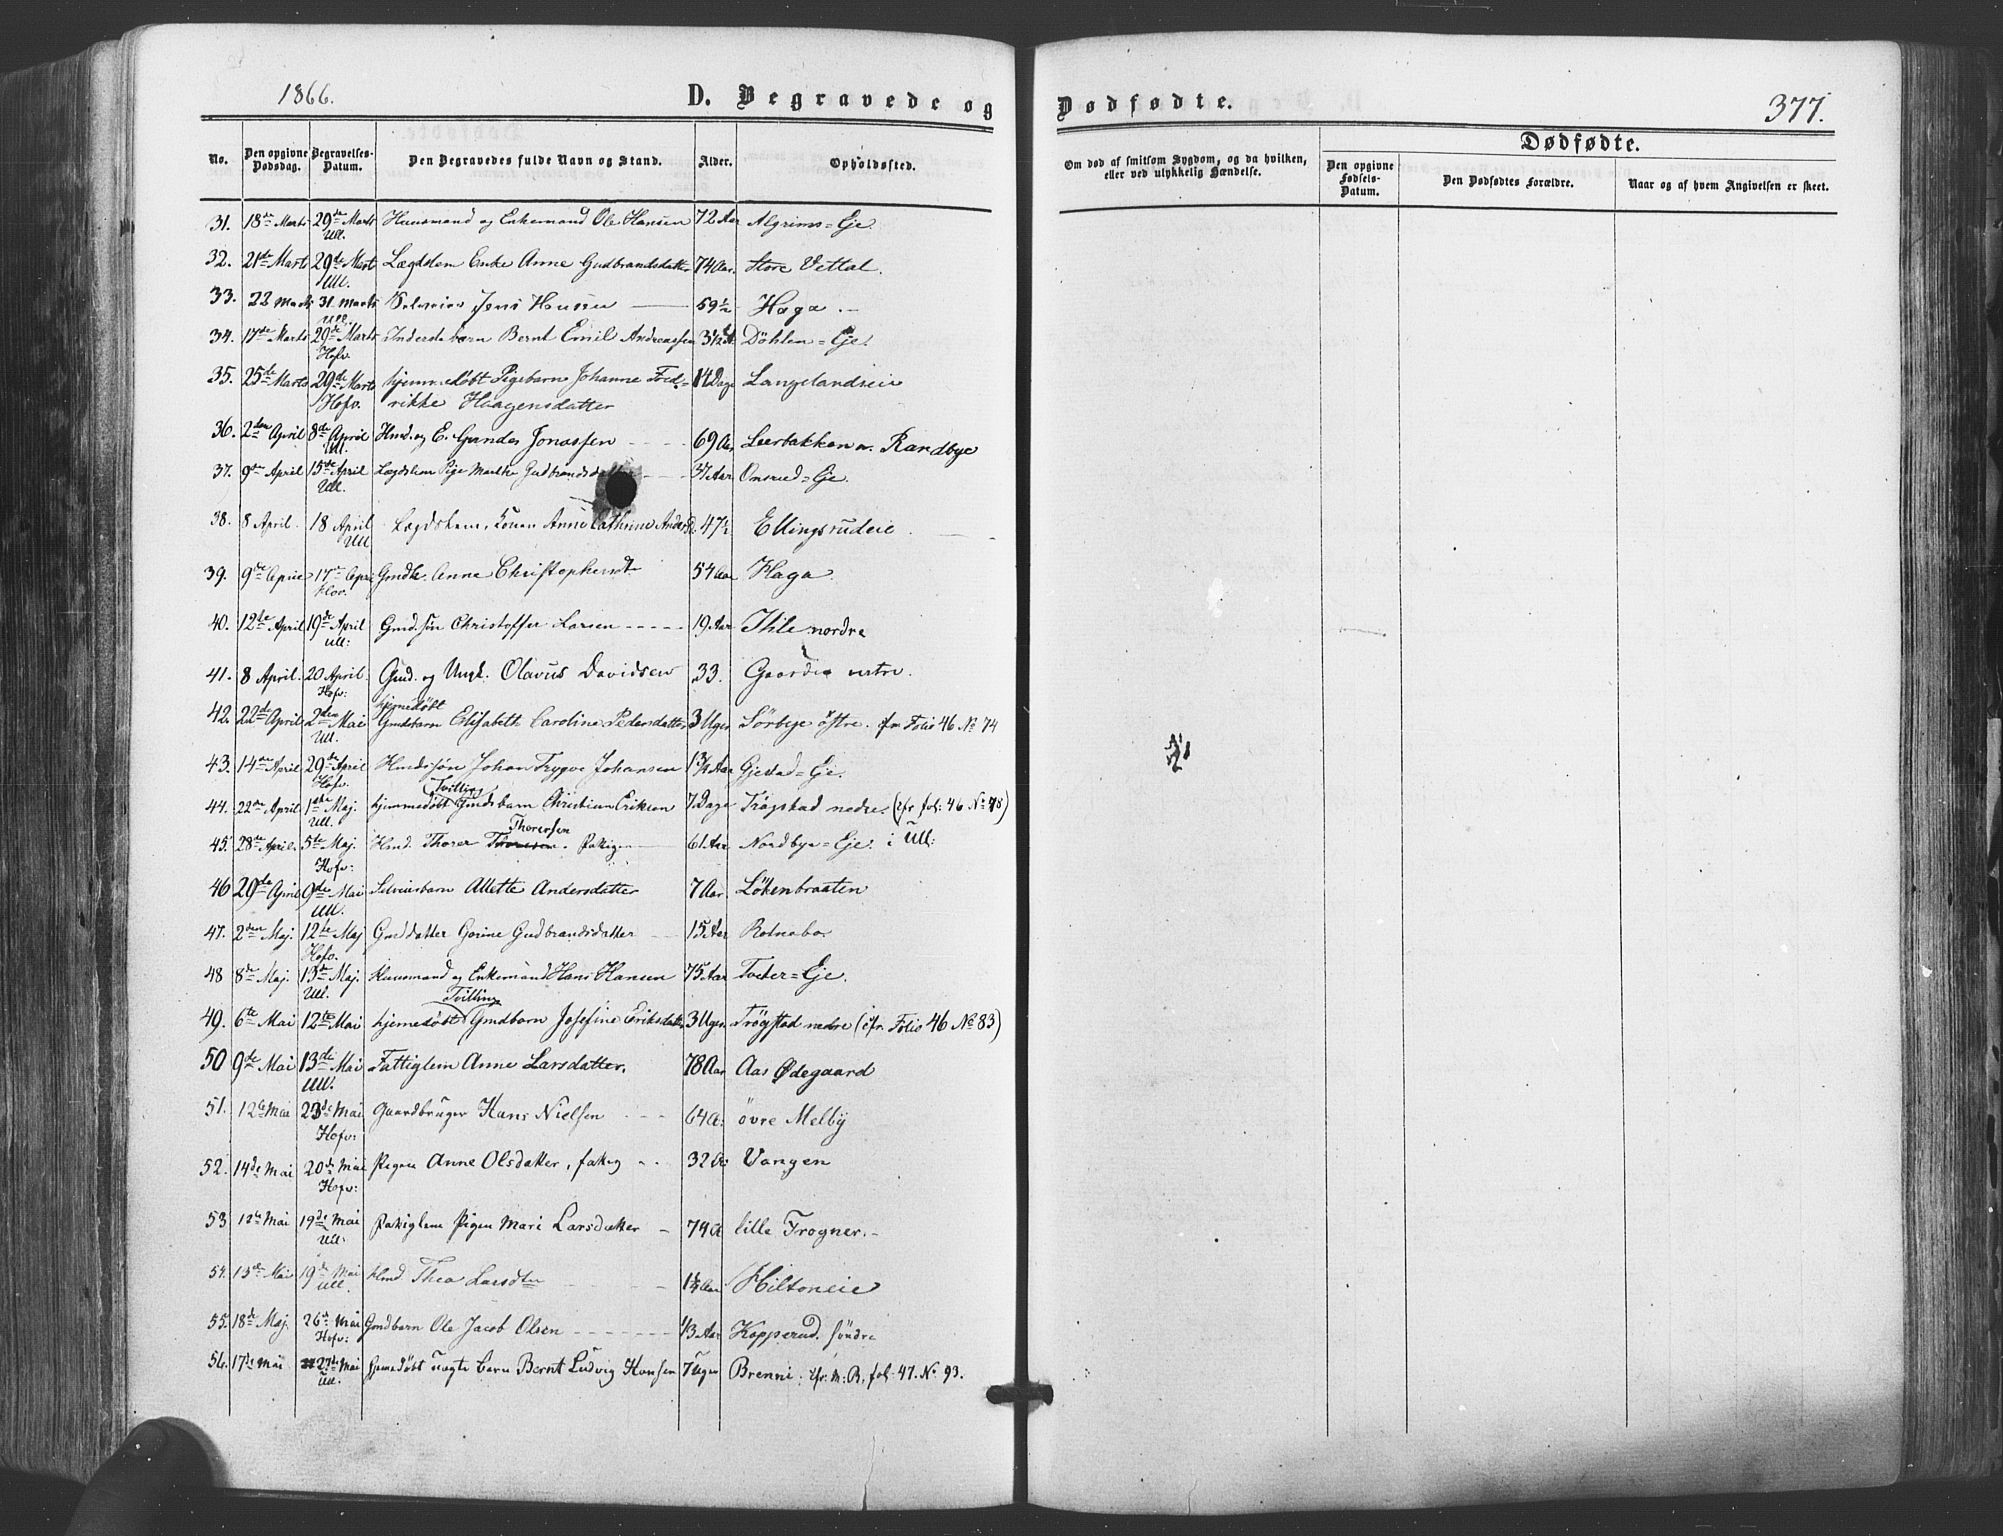 1866.
D. Begravede og
Dødfødte.
377.
No.
Den opgivne Dødsdag.
Begravelses-Datum.
Den Begravedes fulde Navn og Stand.
Alder.
Opholdssted.
Om død af smitsom Sygdom, og da hvilken, eller ved ulykkelig Hændelse.
Dødfødte.
Den opgivne Fødsels-Datum.
Den Dødfødtes Forældre.
Naar og af hvem Angivelsen er skeet.
31. 18de Marts 29de Marts Ull. Huusmand og Enkemand Ole Hansen 72 Aar Algrims=Eje.
32. 21de Marts 29de Mart Ull. Lægdslem Enke Anne Gudbrandsdatter 74 Aar. Store Vettal.
33. 22 Marts 31 Marts Ull. Jens Hansen 59½ Haga
34. 17de Marts 29de Marts Hofv. Inderstebarn Bernt Emil Andreassen Döhlen=Eje.
35. 25de Marts 29de Marts Hofv. hjemmedøbt Pigebarn Johanne Fred=
rikke Haagensdatter 14 Dage Langelandseie
36. 2den April 8de April Ull. Hmd. og E. Gunder Jonassen 69 Aar Leerbakken Randbye
37. 9de April 15de April Ull. Lægdslem Pige Marthe Gudbrandsdatter 37 Aar Onsrud=Eje.
38. 8 April. 18 April Ull Lægdslem, Konen Anne Cathrine Andersd. 47½ Ellingsrudeie
39. 9de April 17de April Hov. Gmdk. Anne Christophersdt 54 Aar Haga.
40. 12te April 19de April Ull: Gmd.sön Christoffer Larsen 19 Aar Ihle nordre
41. 8 April. 20 April. Hofv: Gmd. og Ungk. Olavus Davidsen 33. Gaarder vestre.
42. 22de April 2den Mai Ull. hjemedöbt Gmdbarn Elisabeth Caroline Pedersdatter 3 Uger Sörbye östre. cfr Folio 46 No 74
43. 14de April 29de April Hofv. Hmdssön Johan Trygve Johansen 1¾ Aar Gjestad=Eje.
44. 22de April 1ste Maj. Ull. hjemmedøbt (Tvilling) Gmdsbarn Christian Eriksen 7 Dage Trögstad nedre. (cfr fol: 46 No 78)
45. 28de April. 5te Maj. Hofv: Hmd. Thorer Thoresen Thorersen. Fattig 61 Aar Nordbye=Eje. i Ull:
46 29de April 9de Mai Ull. Selveierbarn Allette Andersdatter 7 Aar. Lökenbraaten
47. 2den Maj. 12te Maj Hofv. Gmddatter Gorine Gudbrandsdatter 15 Aar Rotnebo.
48 8de Maj. 13de Maj. Ull. Huusmand og Enkemand Hans Hansen 75 Aar Tveter=Eje.
49. 6te Mai 12te Mai hjemedöbt (Tvilling) Gmdbarn Josefine Eriksdatter 3 Uger Trögstad nedre (cfr. Folio 46 No 83)
50 9de Mai 13de Mai Ull. Fattiglem Anne Larsdatter. 78 Aar Aas Ødegaard
51. 12te Mai 23de Mai Hofv: Gaardbruger Hans Nielsen 64 A: övre Melby
52. 14de Mai 20de Mai Hofv: Pigen Anne Olsdatter, fattig 32 A: Vangen
53 12te Mai 19de Mai Ull: Fattiglem Pigen Mari Larsdatter 74 A lille Frogner.
54. 13de Mai 19de Mai Ull. Hmd. Thea Larsdter Aar Hiltoneie
55. 18de Maj. 26de Mai Hofv: Gmdbarn Ole Jacob Olsen Aar Kopperud. söndre
56. 17de Mai 27de Mai Ull. hjemedöbt uægte barn Bernt Ludvig Hansen 7 Uger Brenni. cfr. M: B. fol: 47. No 93.